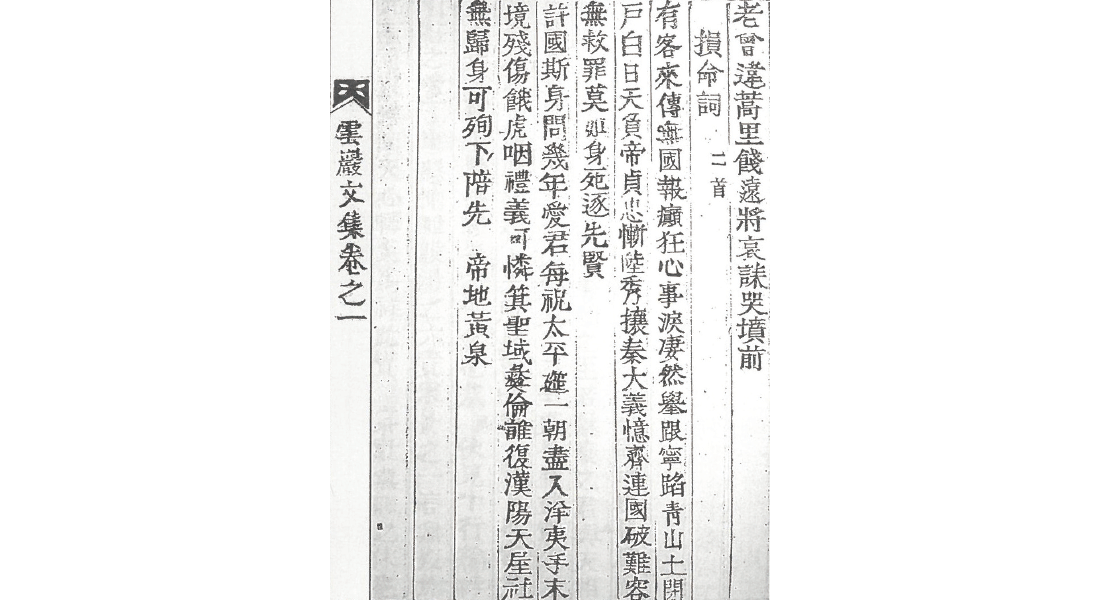 老曾違蒿里餞遠將哀誄哭墳前
損命詞 二首
有客來傳無國報癲狂心事淚凄然擧跟寧蹈靑山土閉
戶白日天負帝貞忠慚陸秀攘秦大義憶齊連國破難容
無救罪莫如身死逐先賢
許國斯身問幾年愛君每祝太平筵一朝盡入洋夷手末
境殘傷餓虎咽禮義可憐箕聖域彝倫誰復漢陽天屋社
無歸身可殉下陪先 帝地黃泉
雲巖文集卷之一